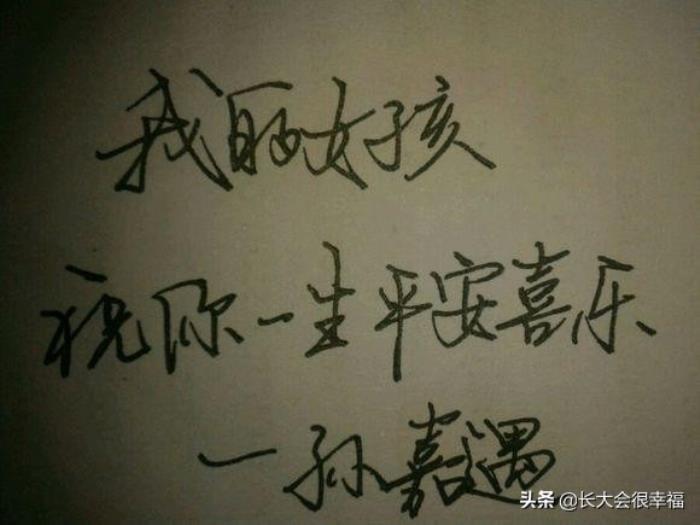 我的女孩
祝你一生平安喜乐
一孙嘉遇
头条 @长大会很幸福